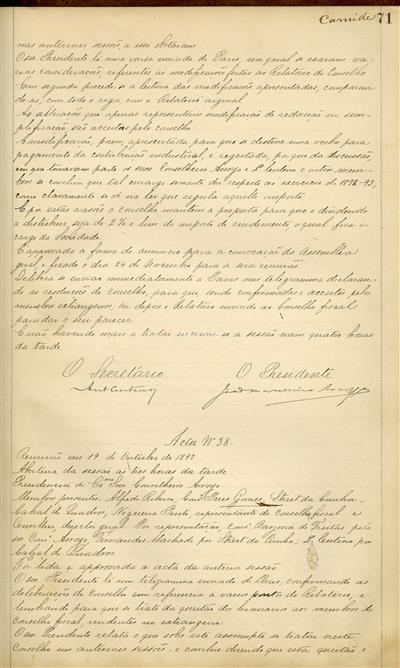 Carnide 71
nas anteriores sessões, a isso obstavam.
O sr. Presidente lê uma carta enviada de Paris, na qual se exaram va-
rias considerações referentes ás modificações feitas ao Relatorio do Conselho
Em seguida procede-se á leitura das modificações apresentadas, comparan-
do-as, com todo o rigor, com o Relatorio original
As alterações que apenas representam modificação de redacção ou sim-
plificação, são acceitas pelo conselho
A modificação, porem, apresentada para que se destine uma verba para
pagamento da contribuição industrial, é regeitada, porque da discussão,
em que tomaram parte os snrs Conselheiro Arroyo e S. Centeno e outros mem-
bros se concluiu que tal encargo sómente diz respeito ao exercicio de 1892-93,
como claramente se vê na lei que regula aquelle imposto.
E por estas razões o conselho mantem a proposta para que o dividendo
a distribuir seja de 2% e livre de imposto de rendimento, o qual fica a
cargo da Sociedade
É approvada a forma do annuncio para a convocação da Assemblea
geral, e fixado o dia 26 de Novembro para a sua reunião.
Delibera-se enviar immediatamente a Paris um telegramma declaran-
do as resoluções do Conselho, para que sendo confirmadas e acceites pelos
membros extrangeiros, se depois o Relatorio enviado ao Conselho fiscal
para dar o seu parecer.
E não havendo mais a tratar encerrou-se a sessão eram quatro horas
da tarde.
O Secretário O Presidente
Acta Nº 38.
Reunião em 19 de Outubro de 1892
Abertura da sessão ás tres horas da tarde
Presidencia do Exmo Snr Conselheiro Arroyo
Membros presentes, Alfredo Ribeiro, Pires Gomes, Street da Cunha,
Cabral de Quadros, Nogueira Pinto, representante do Conselho fiscal e
director geral. Por representação, Cons. Barjona de Freitas pelo
sr. Cons. Arroyo, Fernandes Machado por Street da Cunha, S. Centeno por
Cabral de Quadros.
Foi lida e approvada a acta da anterior sessão
O snr. Presidente lê um telegramma enviado de Paris, confirmando as
deliberações do Conselho com referencia a varios pontos do Relatorio, e
lembrando para que se trate da questão dos honorarios aos membros do
Conselho fiscal, residentes no extrangeiro.
O snr. Presidente relata o que sobre este assumpto se tratou neste
Conselho em anteriores sessões, e conclue dizendo que esta questão é